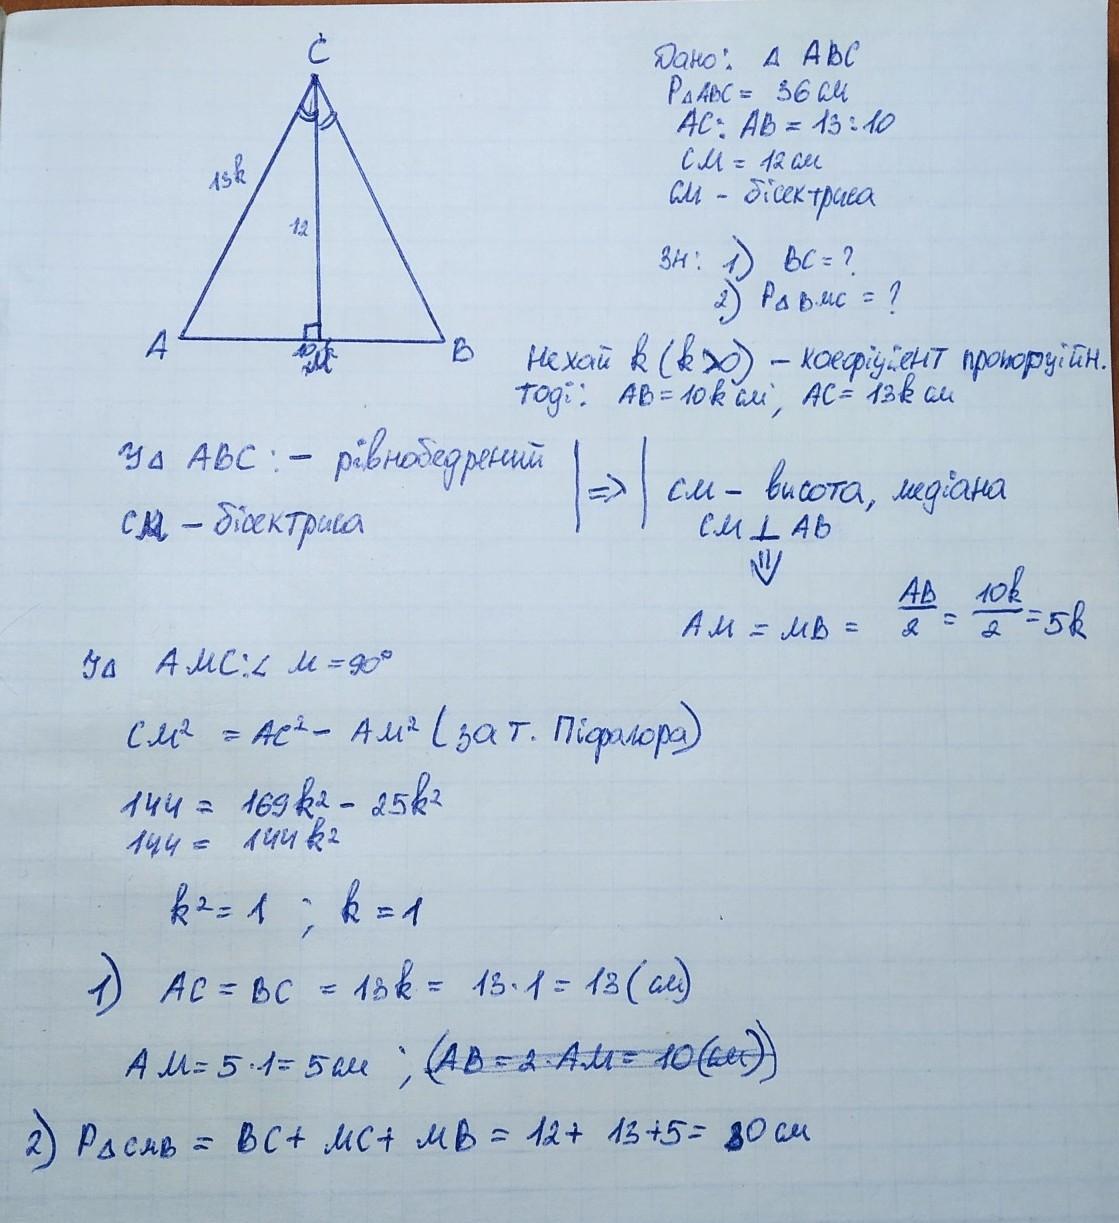 C
13k
12
A
10k
M
B
Дано: Δ ABC
PΔABC = 36 см
AC: AB = 13:10
CM = 12 см
CM - бісектриса
Зн: 1) BC = ?
2) PΔBMC = ?
Нехай k (k>0) - коефіцієнт пропорційн.
Тоді: AB = 10k см, AC = 13k см
УΔ ABC: - рівнобедрений
CM - бісектриса
=> CM - висота, медіана
CM ⊥ AB
⇓
AM = MB = AB/2 = 10k/2 = 5k
УΔ AMC: ∠ M = 90°
CM² = AC² - AM² (за т. Піфагора)
144 = 169k² - 25k²
144 = 144k²
k² = 1 ; k = 1
1) AC = BC = 13k = 13·1 = 13 (см)
AM = 5·1 = 5 см ; (AB = 2·AM = 10 (см))
2) PΔCMB = BC + MC + MB = 12 + 13 + 5 = 30 см